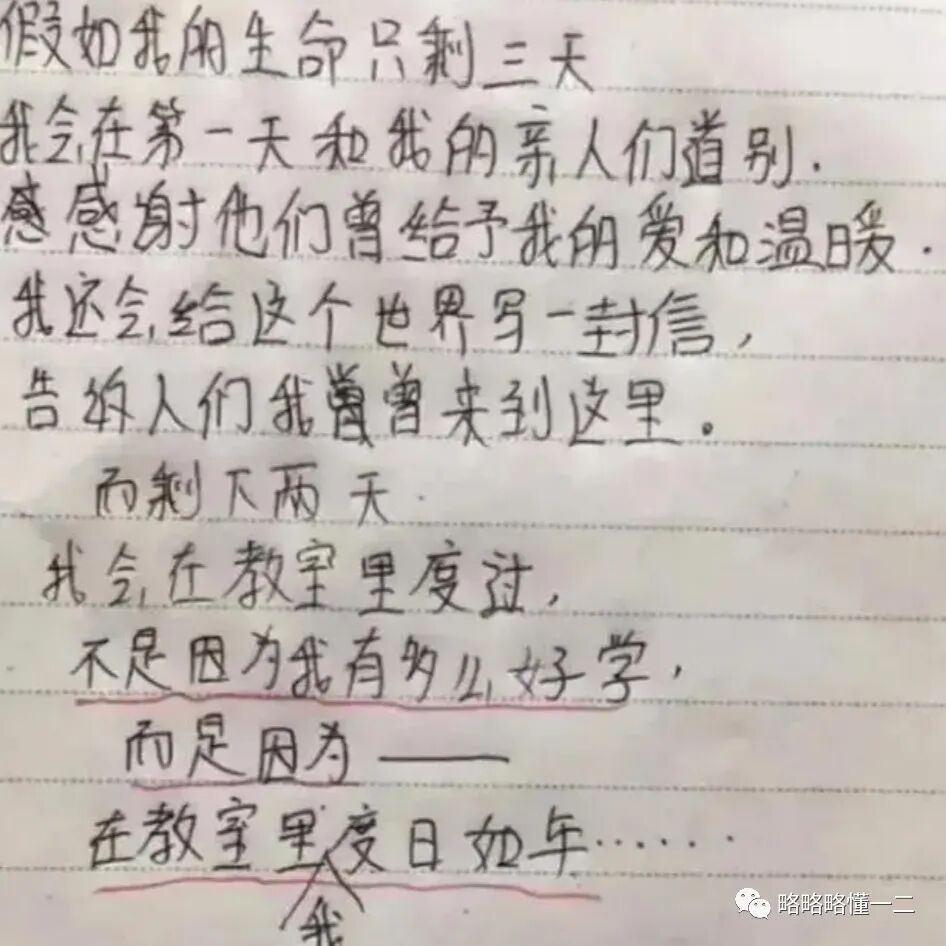 假如我的生命只剩三天
我会在第一天和我的亲人们道别.
感感谢他们曾给予我的爱和温暖.
我还会给这个世界写一封信,
告的人们我曾曾来到这里。
而剩下两天.
我会在教室里度过,
不是因为我有多么好学,
而是因为——
在教室里度日如年……
我
略略略懂一二